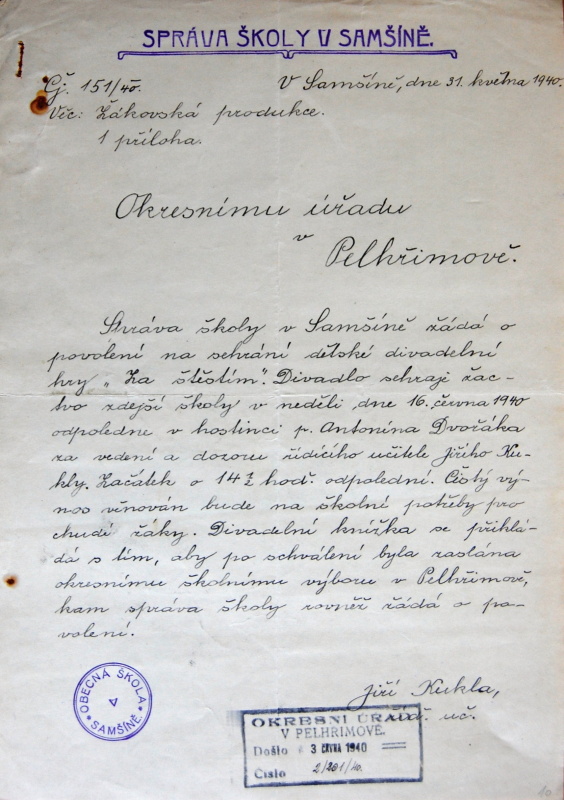 SPRÁVA ŠKOLY V SAMŠÍNĚ.
Čj. 151/40.
V Samšíně, dne 31. května 1940.
Věc: Žákovská produkce.
1 příloha.
Okresnímu úřadu
v
Pelhřimově.
Správa školy v Samšíně žádá o
povolení na sehrání dětské divadelní
hry „Za štěstím". Divadlo sehraje žac-
tvo zdejší školy v neděli, dne 16. června 1940
odpoledne v hostinci p. Antonína Dvořáka
za vedení a dozoru řídícího učitele Jiřího Ku-
kly. Začátek o 14 1/2 hod. odpolední. Čistý vý-
nos věnován bude na školní potřeby pro
chudé žáky. Divadelní knížka se přiklá-
dá s tím, aby po schválení byla zaslána
okresnímu školnímu výboru v Pelhřimově,
kam správa školy rovněž žádá o po-
volení.
Jiří Kukla,
říd. uč.
OBECNÁ ŠKOLA
V
SAMŠÍNĚ.
OKRESNÍ ÚŘAD
V PELHŘIMOVĚ.
Došlo 3 ČRVNA 1940
Číslo 2/201/40.
10